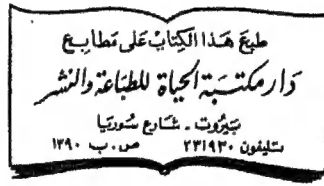 طبع هَذا الكِتاب عَلى مَطابع
دَار مكتَبة الحيَاة للطبَاعَة والنشر
بَيروت - شارع سُوريَا
تليفون ٢٣١٩٣٠ ص.ب ١٣٩٠